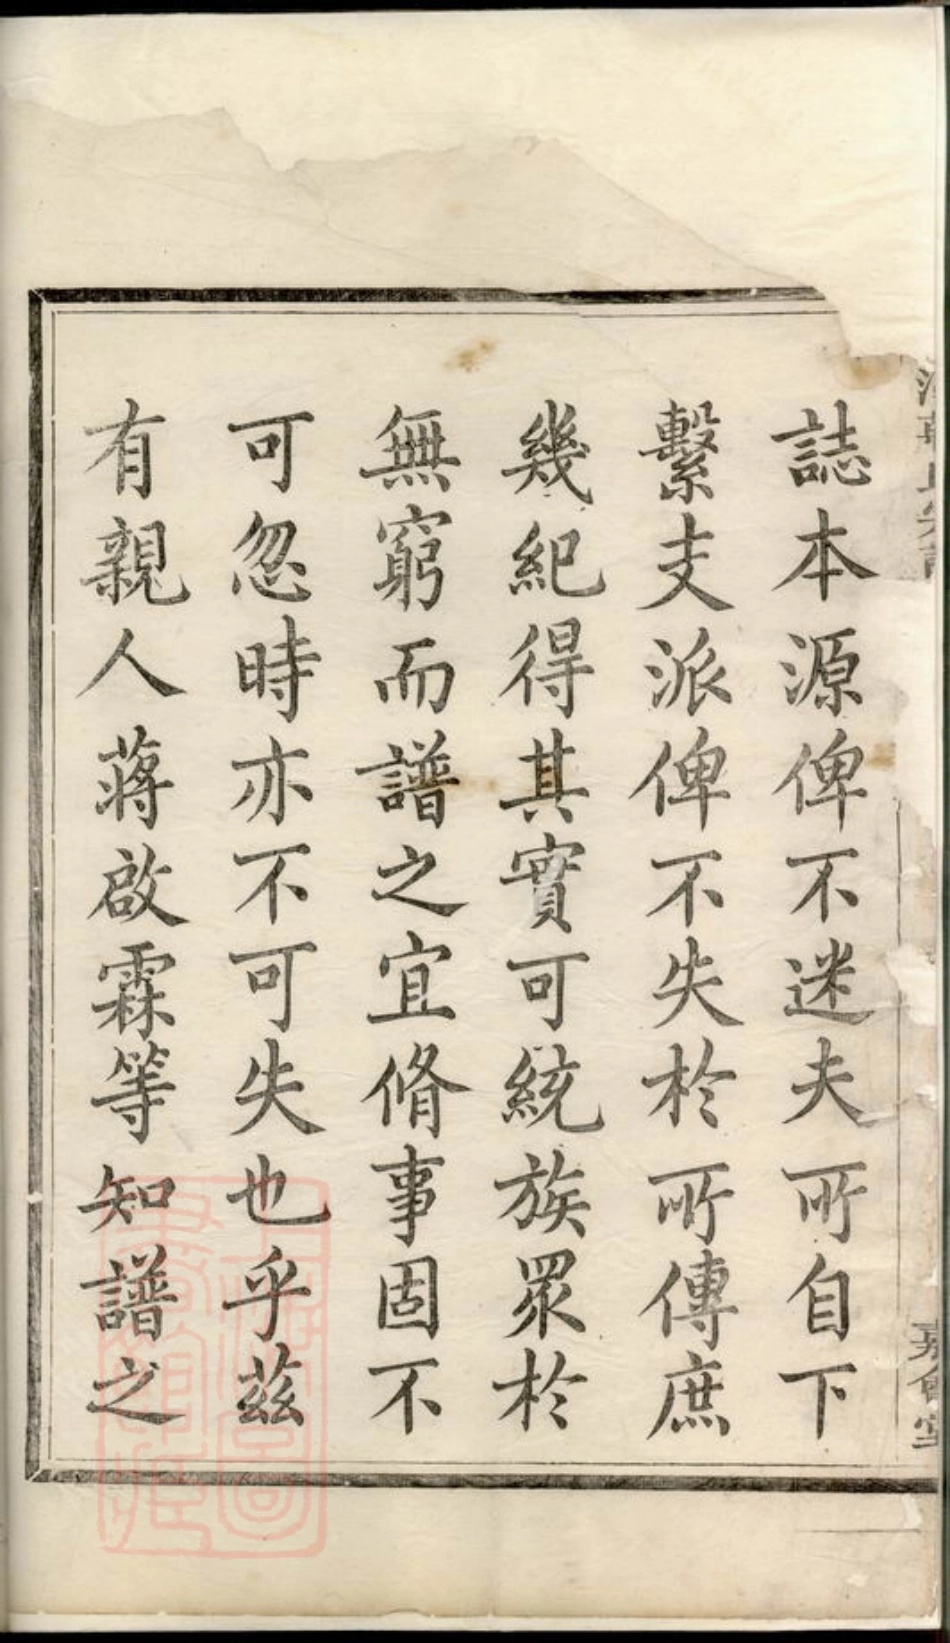 誌本源俾不迷夫所自下
繫支派俾不失於所傳庶
幾紀得其實可統族眾於
無窮而譜之宜脩事固不
可忽時亦不可失也乎茲
有親人蔣啟霖等知譜之